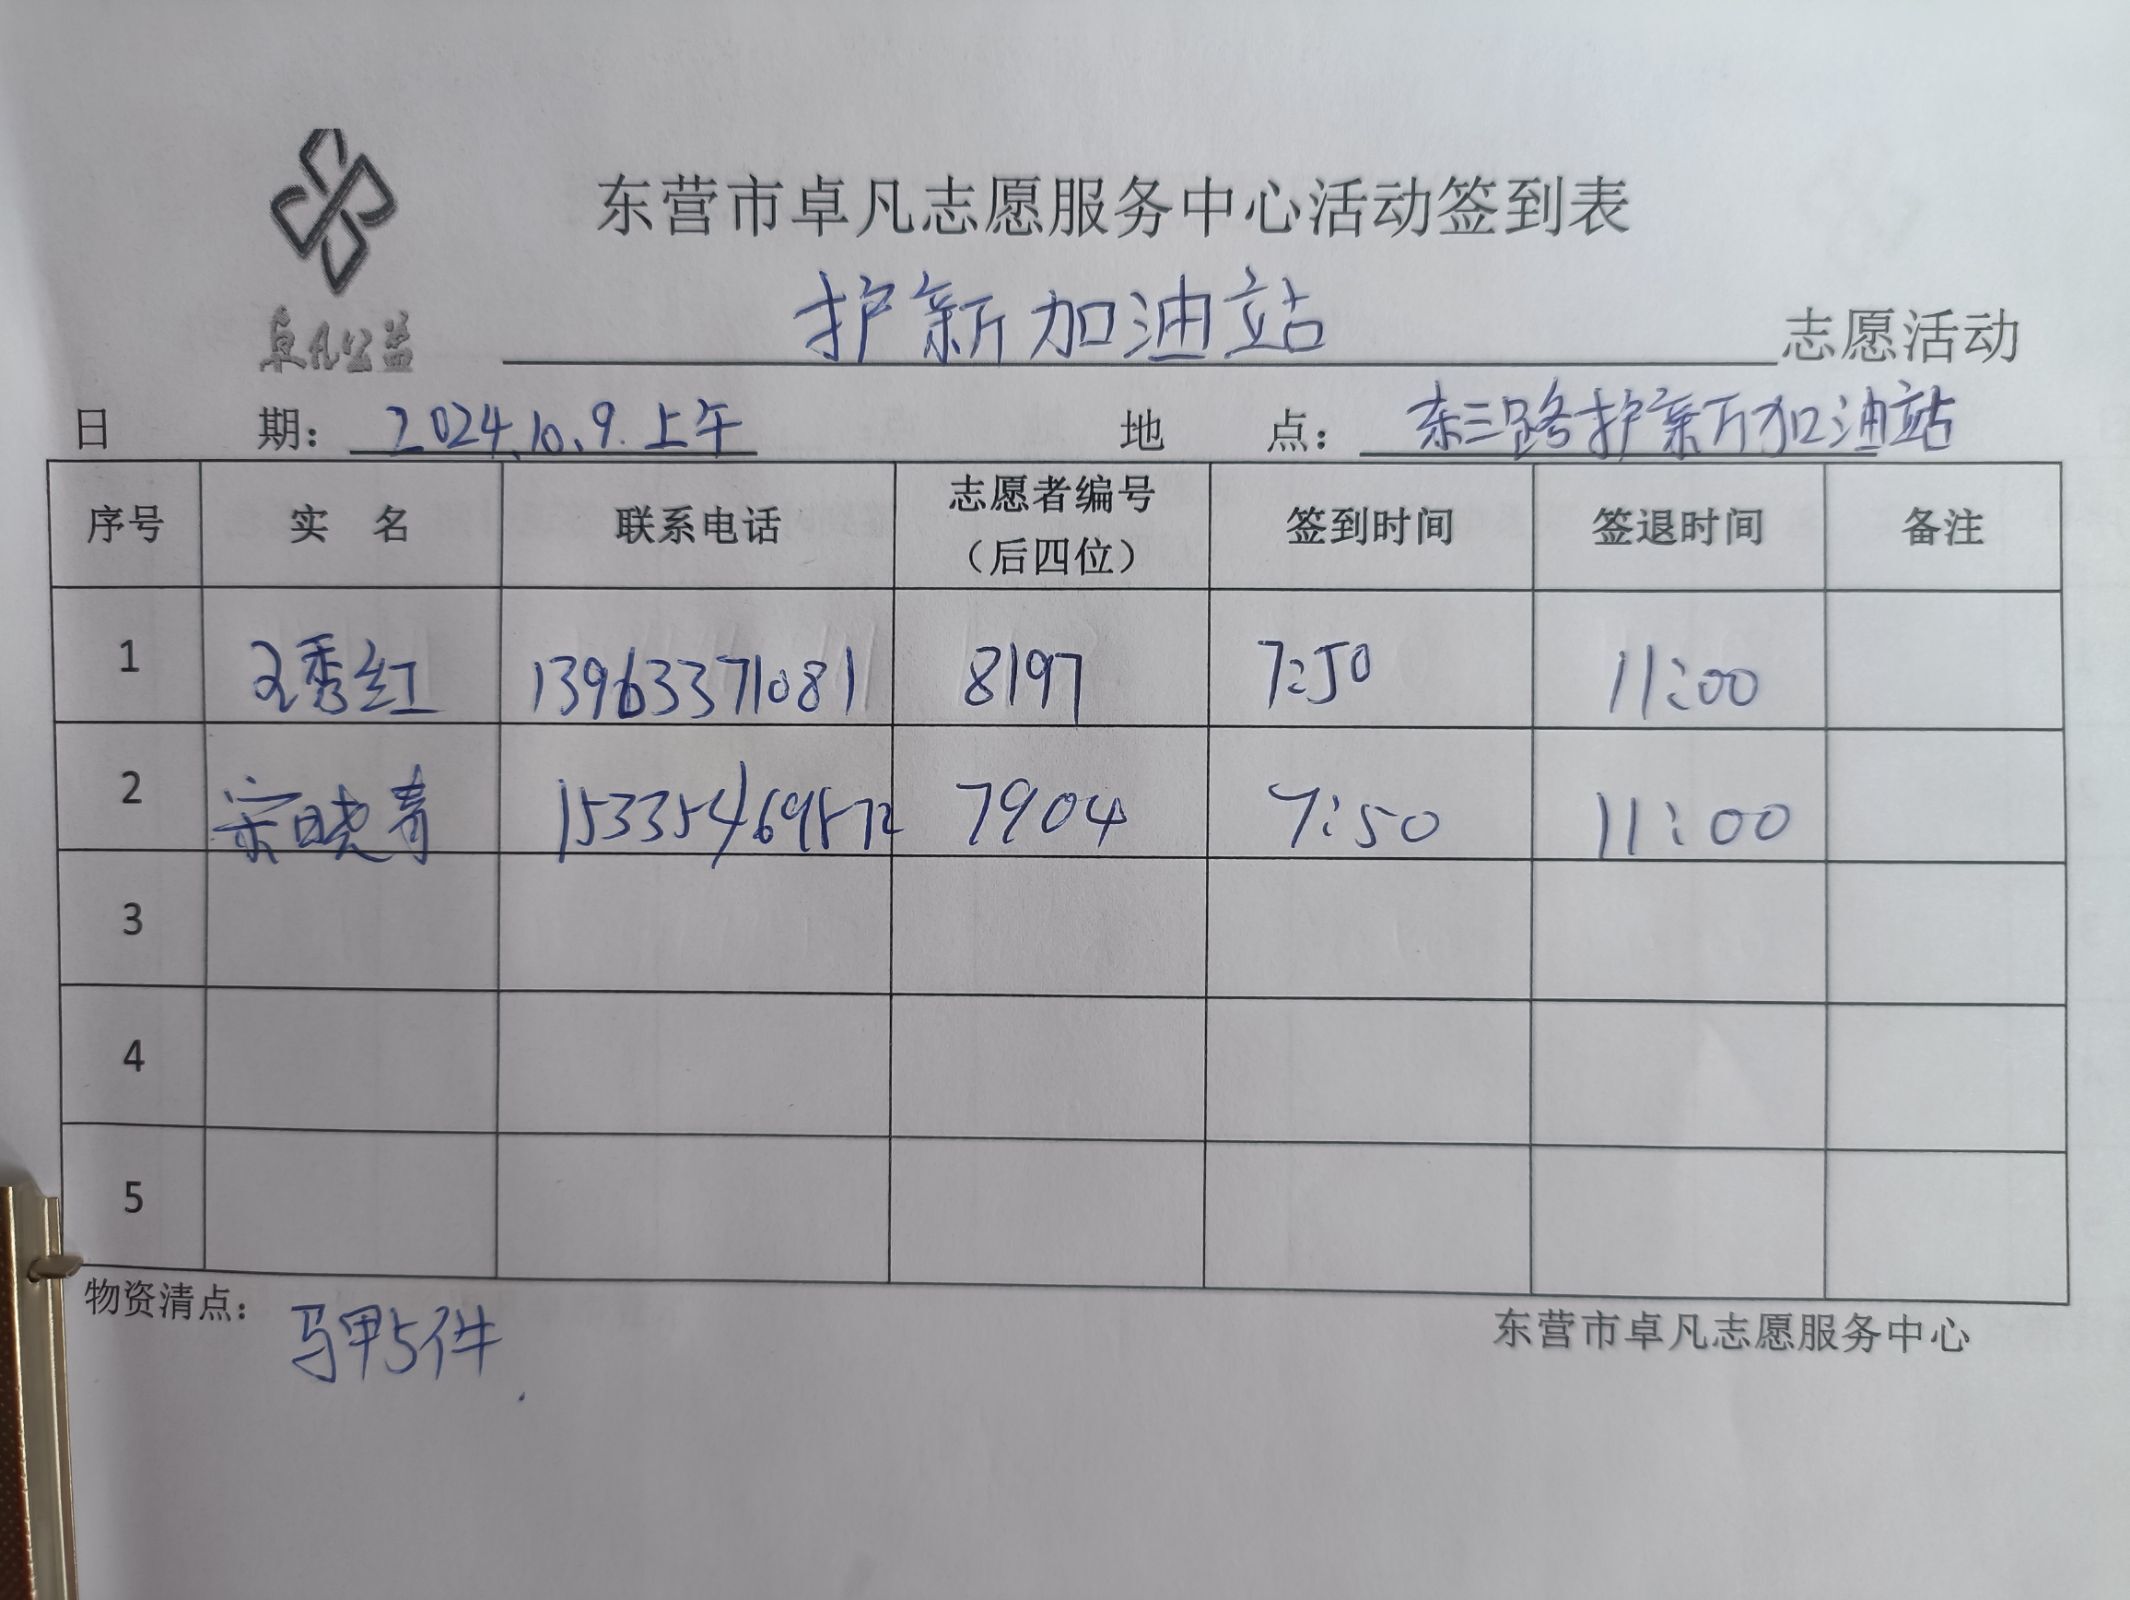 东营市卓凡志愿服务中心活动签到表
卓凡公益
护新加油站志愿活动
日期：2024.10.9.上午 地点：东三路护新加油站
序号 实名 联系电话 志愿者编号（后四位） 签到时间 签退时间 备注
1 王秀红 13963371081 8197 7:50 11:00
2 宋晓青 15335469572 7904 7:50 11:00
3
4
5
物资清点：马甲5件.
东营市卓凡志愿服务中心